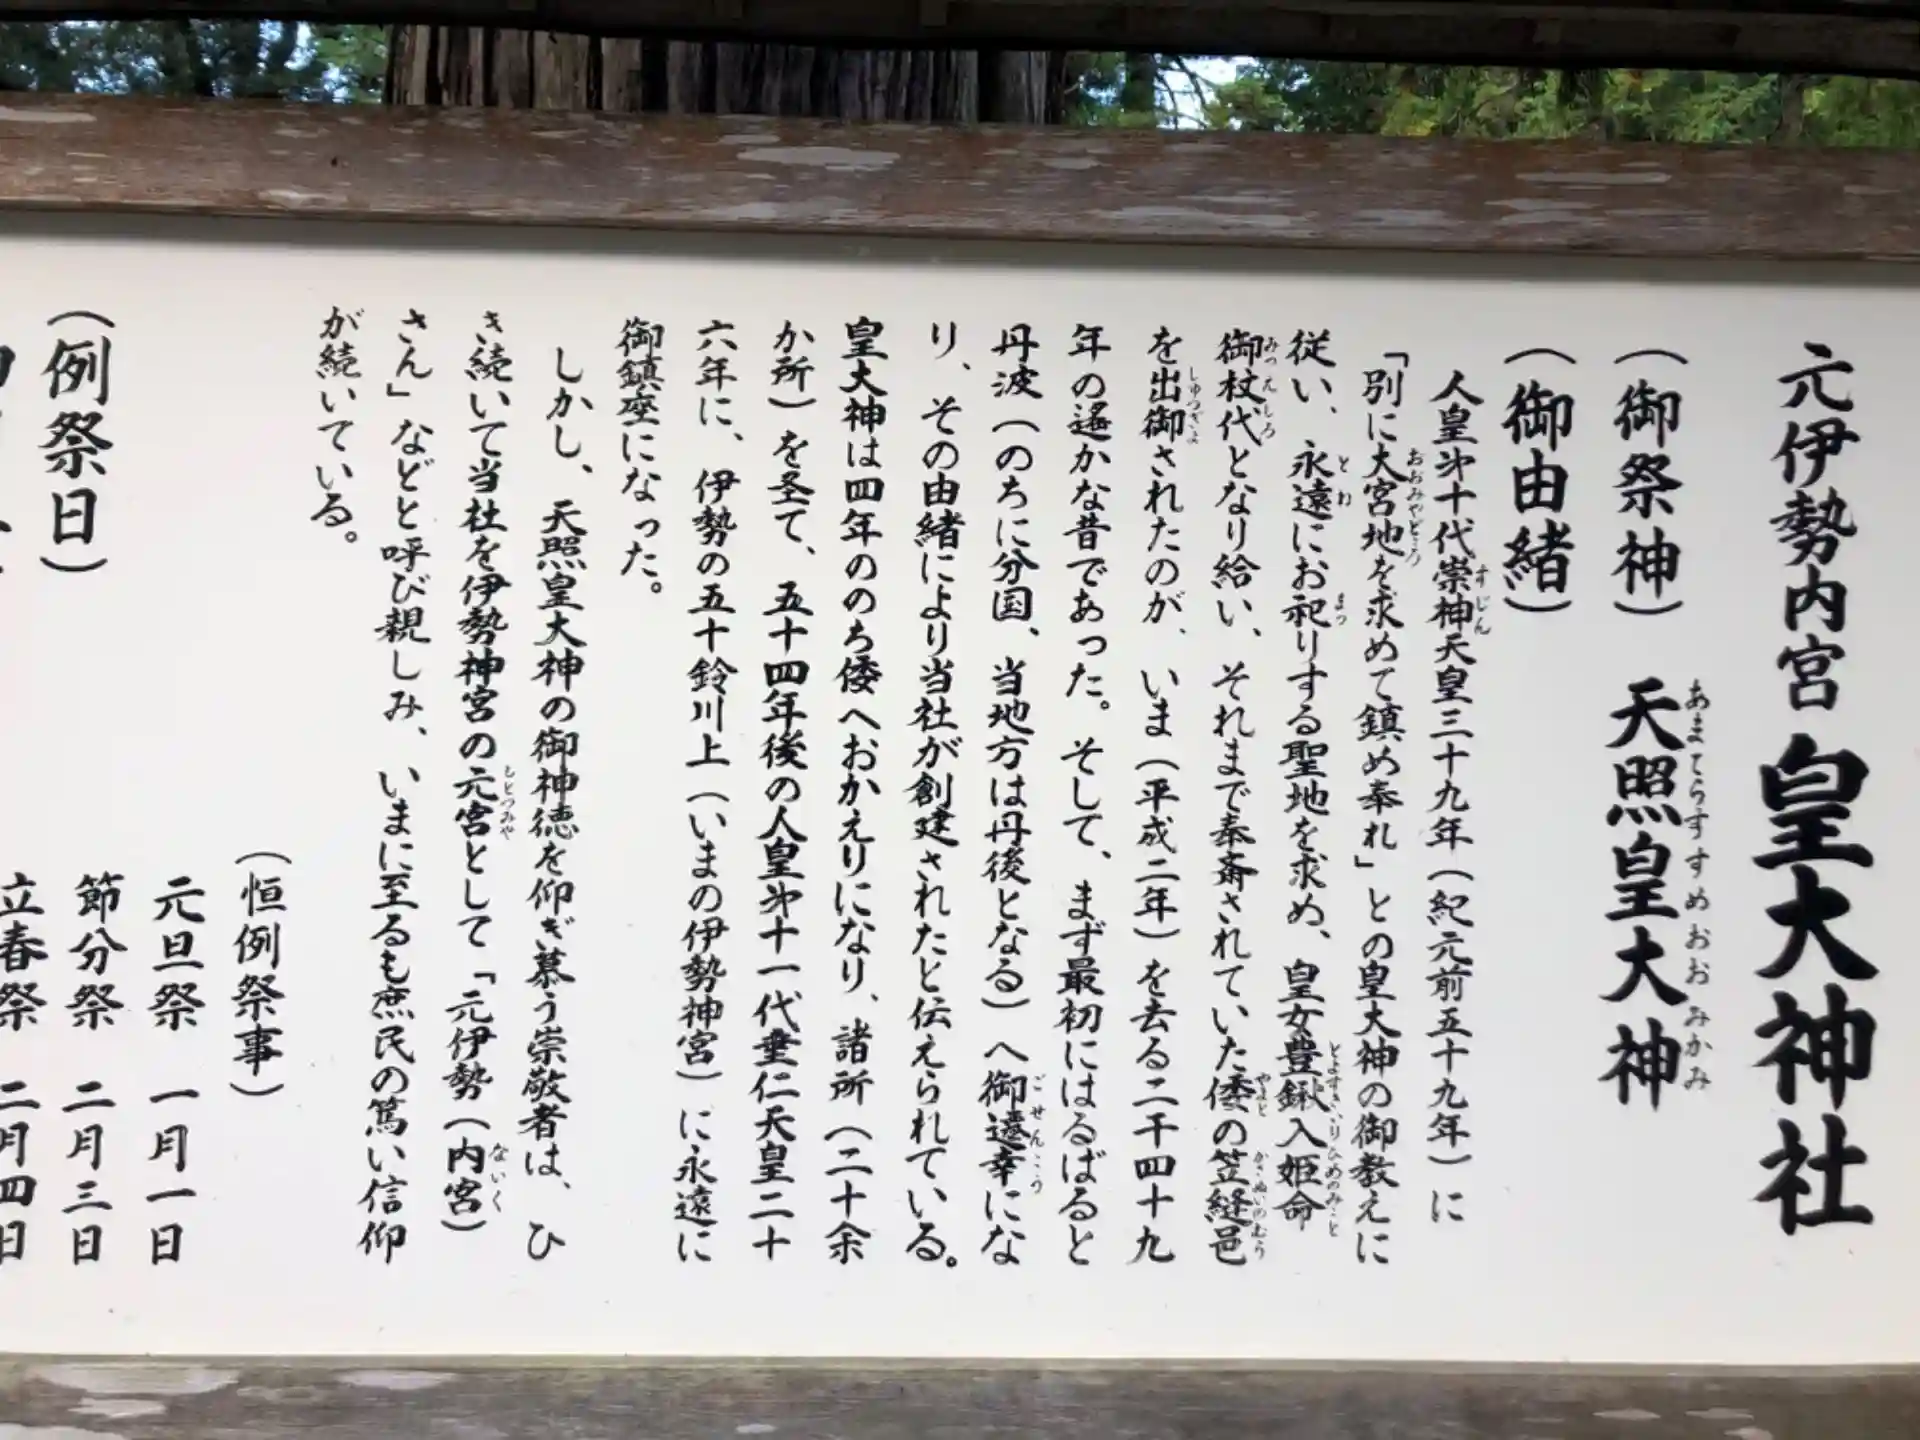 元伊勢内宮 皇大神社
（御祭神） 天照皇大神
あまてらすすめおおみかみ
（御由緒）
人皇第十代崇神天皇三十九年（紀元前五十九年）に
すじん
「別に大宮地を求めて鎮め奉れ」との皇大神の御教えに
おおみやどころ
従い、永遠にお祀りする聖地を求め、皇女豊鍬入姫命
とわ まつ とよすきいりひめのみこと
御杖代となり給い、それまで奉斎されていた倭の笠縫邑
みつえしろ やまと かさぬいのむら
を出御されたのが、いま（平成二年）を去る二千四十九
しゅつぎょ
年の遙かな昔であった。そして、まず最初にはるばると
丹波（のちに分国、当地方は丹後となる）へ御遷幸にな
ごせんこう
り、その由緒により当社が創建されたと伝えられている。
皇大神は四年ののち倭へおかえりになり、諸所（二十余
か所）を圣て、五十四年後の人皇第十一代垂仁天皇二十
六年に、伊勢の五十鈴川上（いまの伊勢神宮）に永遠に
御鎮座になった。
しかし、天照皇大神の御神徳を仰ぎ慕う崇敬者は、ひ
き続いて当社を伊勢神宮の元宮として「元伊勢（内宮）
もとつみや ないく
さん」などと呼び親しみ、いまに至るも庶民の篤い信仰
が続いている。
（恒例祭事）
元旦祭 一月一日
節分祭 二月三日
立春祭 二月四日
（例祭日）